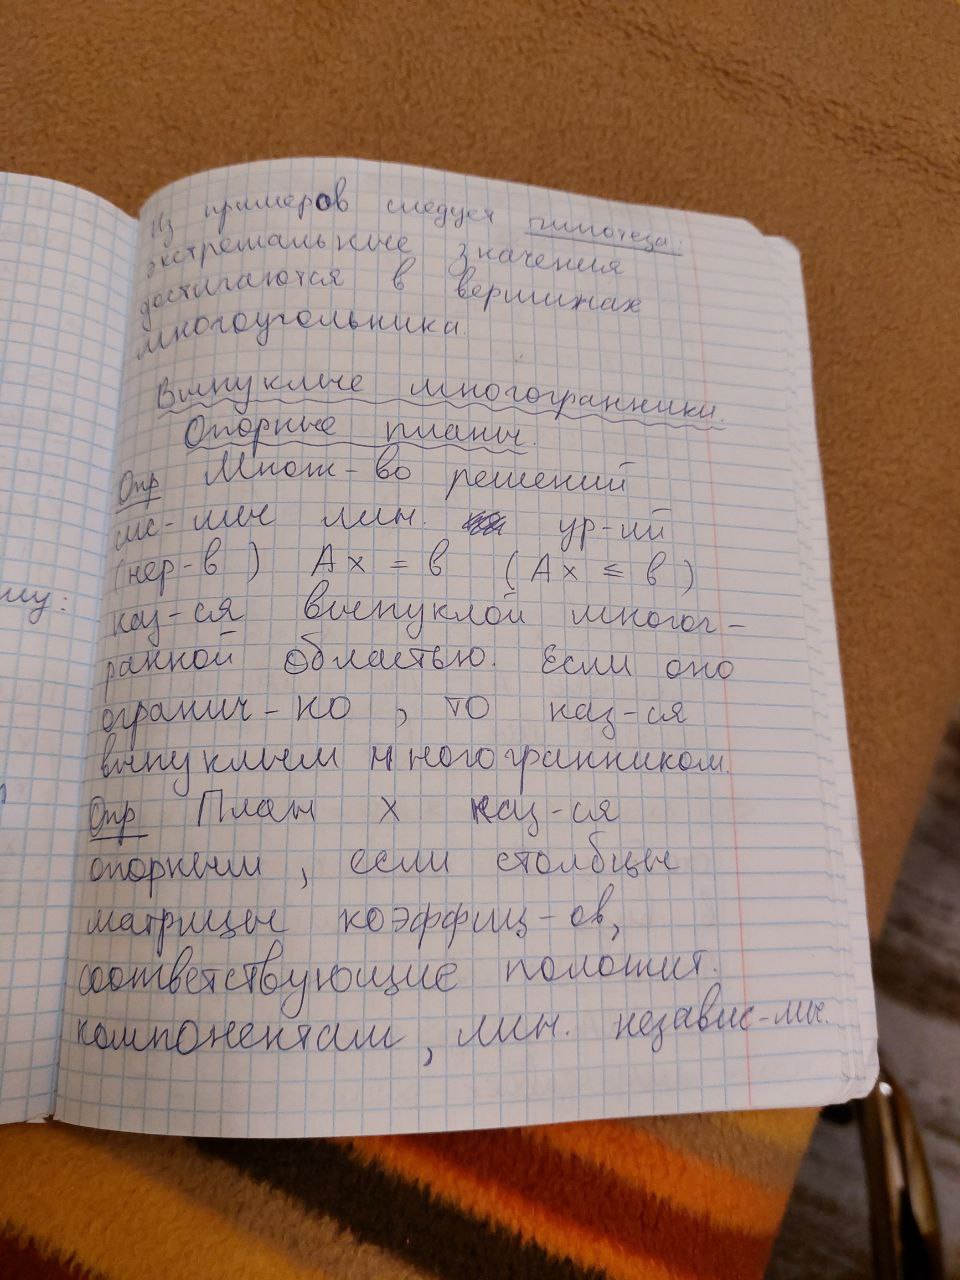 Из примеров следует гипотеза:
экстремальные значения
достигаются в вершинах
многоугольника.
Выпуклые многогранники.
Опорные планы.
Опр Множ-во решений
сис-мы лин. ур-ий
(нер-в) Ax = b (Ax ≤ b)
наз-ся выпуклой многог-
ранной областью. Если оно
огранич-но, то наз-ся
выпуклым многогранником.
Опр План x наз-ся
опорным, если столбцы
матрицы коэффиц-ов,
соответствующие положит.
компонентам, лин. независ-мы.
му: